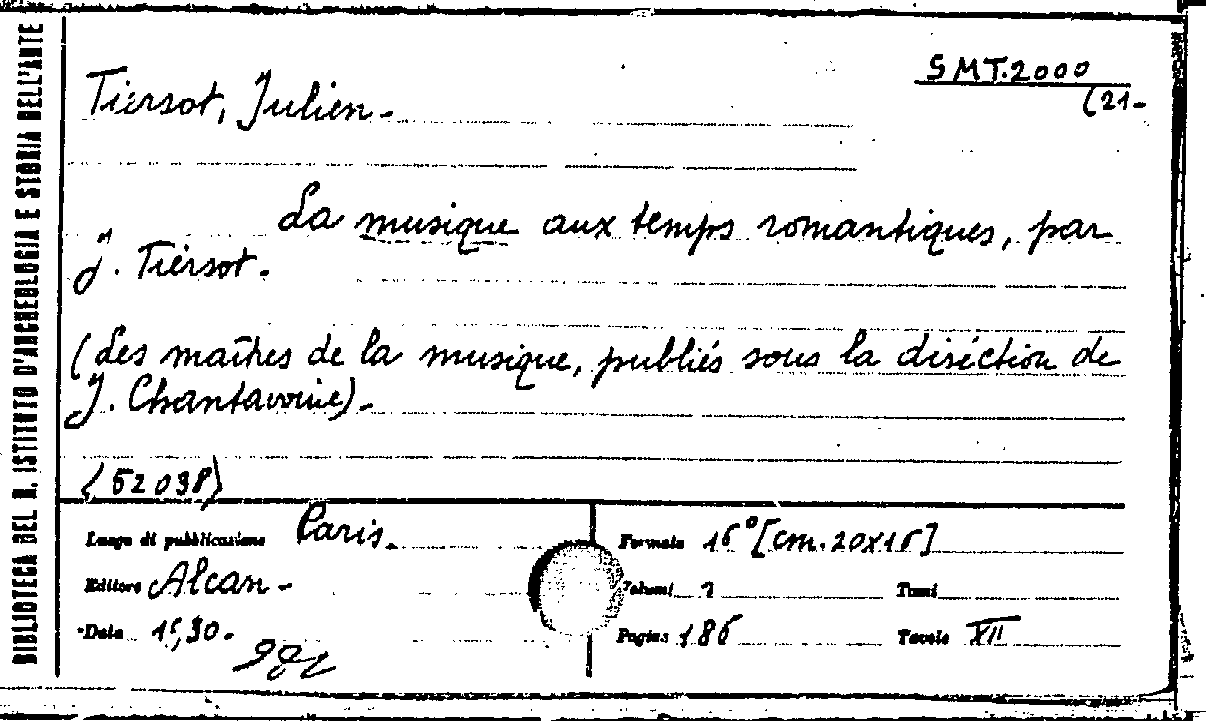 BIBLIOTECA DEL R. ISTITUTO D'ARCHEOLOGIA E STORIA DELL'ANTE
SMT.2000
(21-
Tiersot, Julien.-
La musique aux temps romantiques, par
J. Tiersot.
(Les maîtres de la musique, publiés sous la diréction de
J. Chantavoine).-
(52038)
Luogo di pubblicazione Paris.
Formato 16° [cm. 20x15]
Editore Alcan -
Volumi 1
Tomi
Data 1930.
Pagine 186
Tavole XII